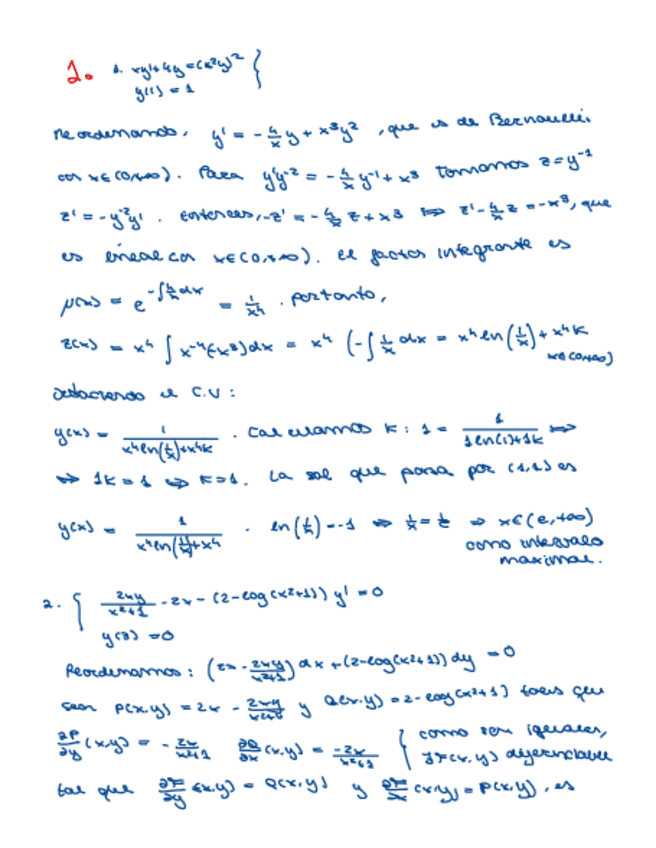 1. 1. xy'+4y=(x²y)² }
y(1) = 1
Reordenando, y' = -4/x y + x³y², que es de Bernoulli
con x∈(0,+∞). Para y'y⁻² = -4/x y⁻¹ + x³ tomamos z=y⁻¹
z' = -y⁻²y'. Entonces, -z' = -4/x z + x³ ⟺ z' - 4/x z = -x³, que
es lineal con x∈(0,+∞). El factor integrante es
μ(x) = e^(-∫4/x dx) = 1/x⁴. Por tanto,
z(x) = x⁴ ∫ x⁻⁴(-x³)dx = x⁴ (-∫ 1/x dx = x⁴ ln(1/x) + x⁴K
x∈(0,+∞)
Deshaciendo el C.V:
y(x) = 1/(x⁴ln(1/x)+x⁴K). Calculamos K: 1 = 1/(1 ln(1)+1K) ⟺
⟺ 1K = 1 ⟺ K=1. La sol que pasa por (1,1) es
y(x) = 1/(x⁴ln(1/x)+x⁴). ln(1/x) = -1 ⟺ 1/x = 1/e ⇒ x∈(e,+∞)
como intervalo
maximal.
2. { 2xy/(x²+1) - 2x - (2-log(x²+1)) y' = 0
y(3) = 0
Reordenamos: (2x - 2xy/(x²+1)) dx + (2-log(x²+1)) dy = 0
Sean P(x,y) = 2x - 2xy/(x²+1) y Q(x,y) = 2-log(x²+1) tales que
∂P/∂y (x,y) = -2x/(x²+1) ∂Q/∂x (x,y) = -2x/(x²+1) { como son iguales,
∃F(x,y) diferenciable
tal que ∂F/∂y (x,y) = Q(x,y) y ∂F/∂x (x,y) = P(x,y), es